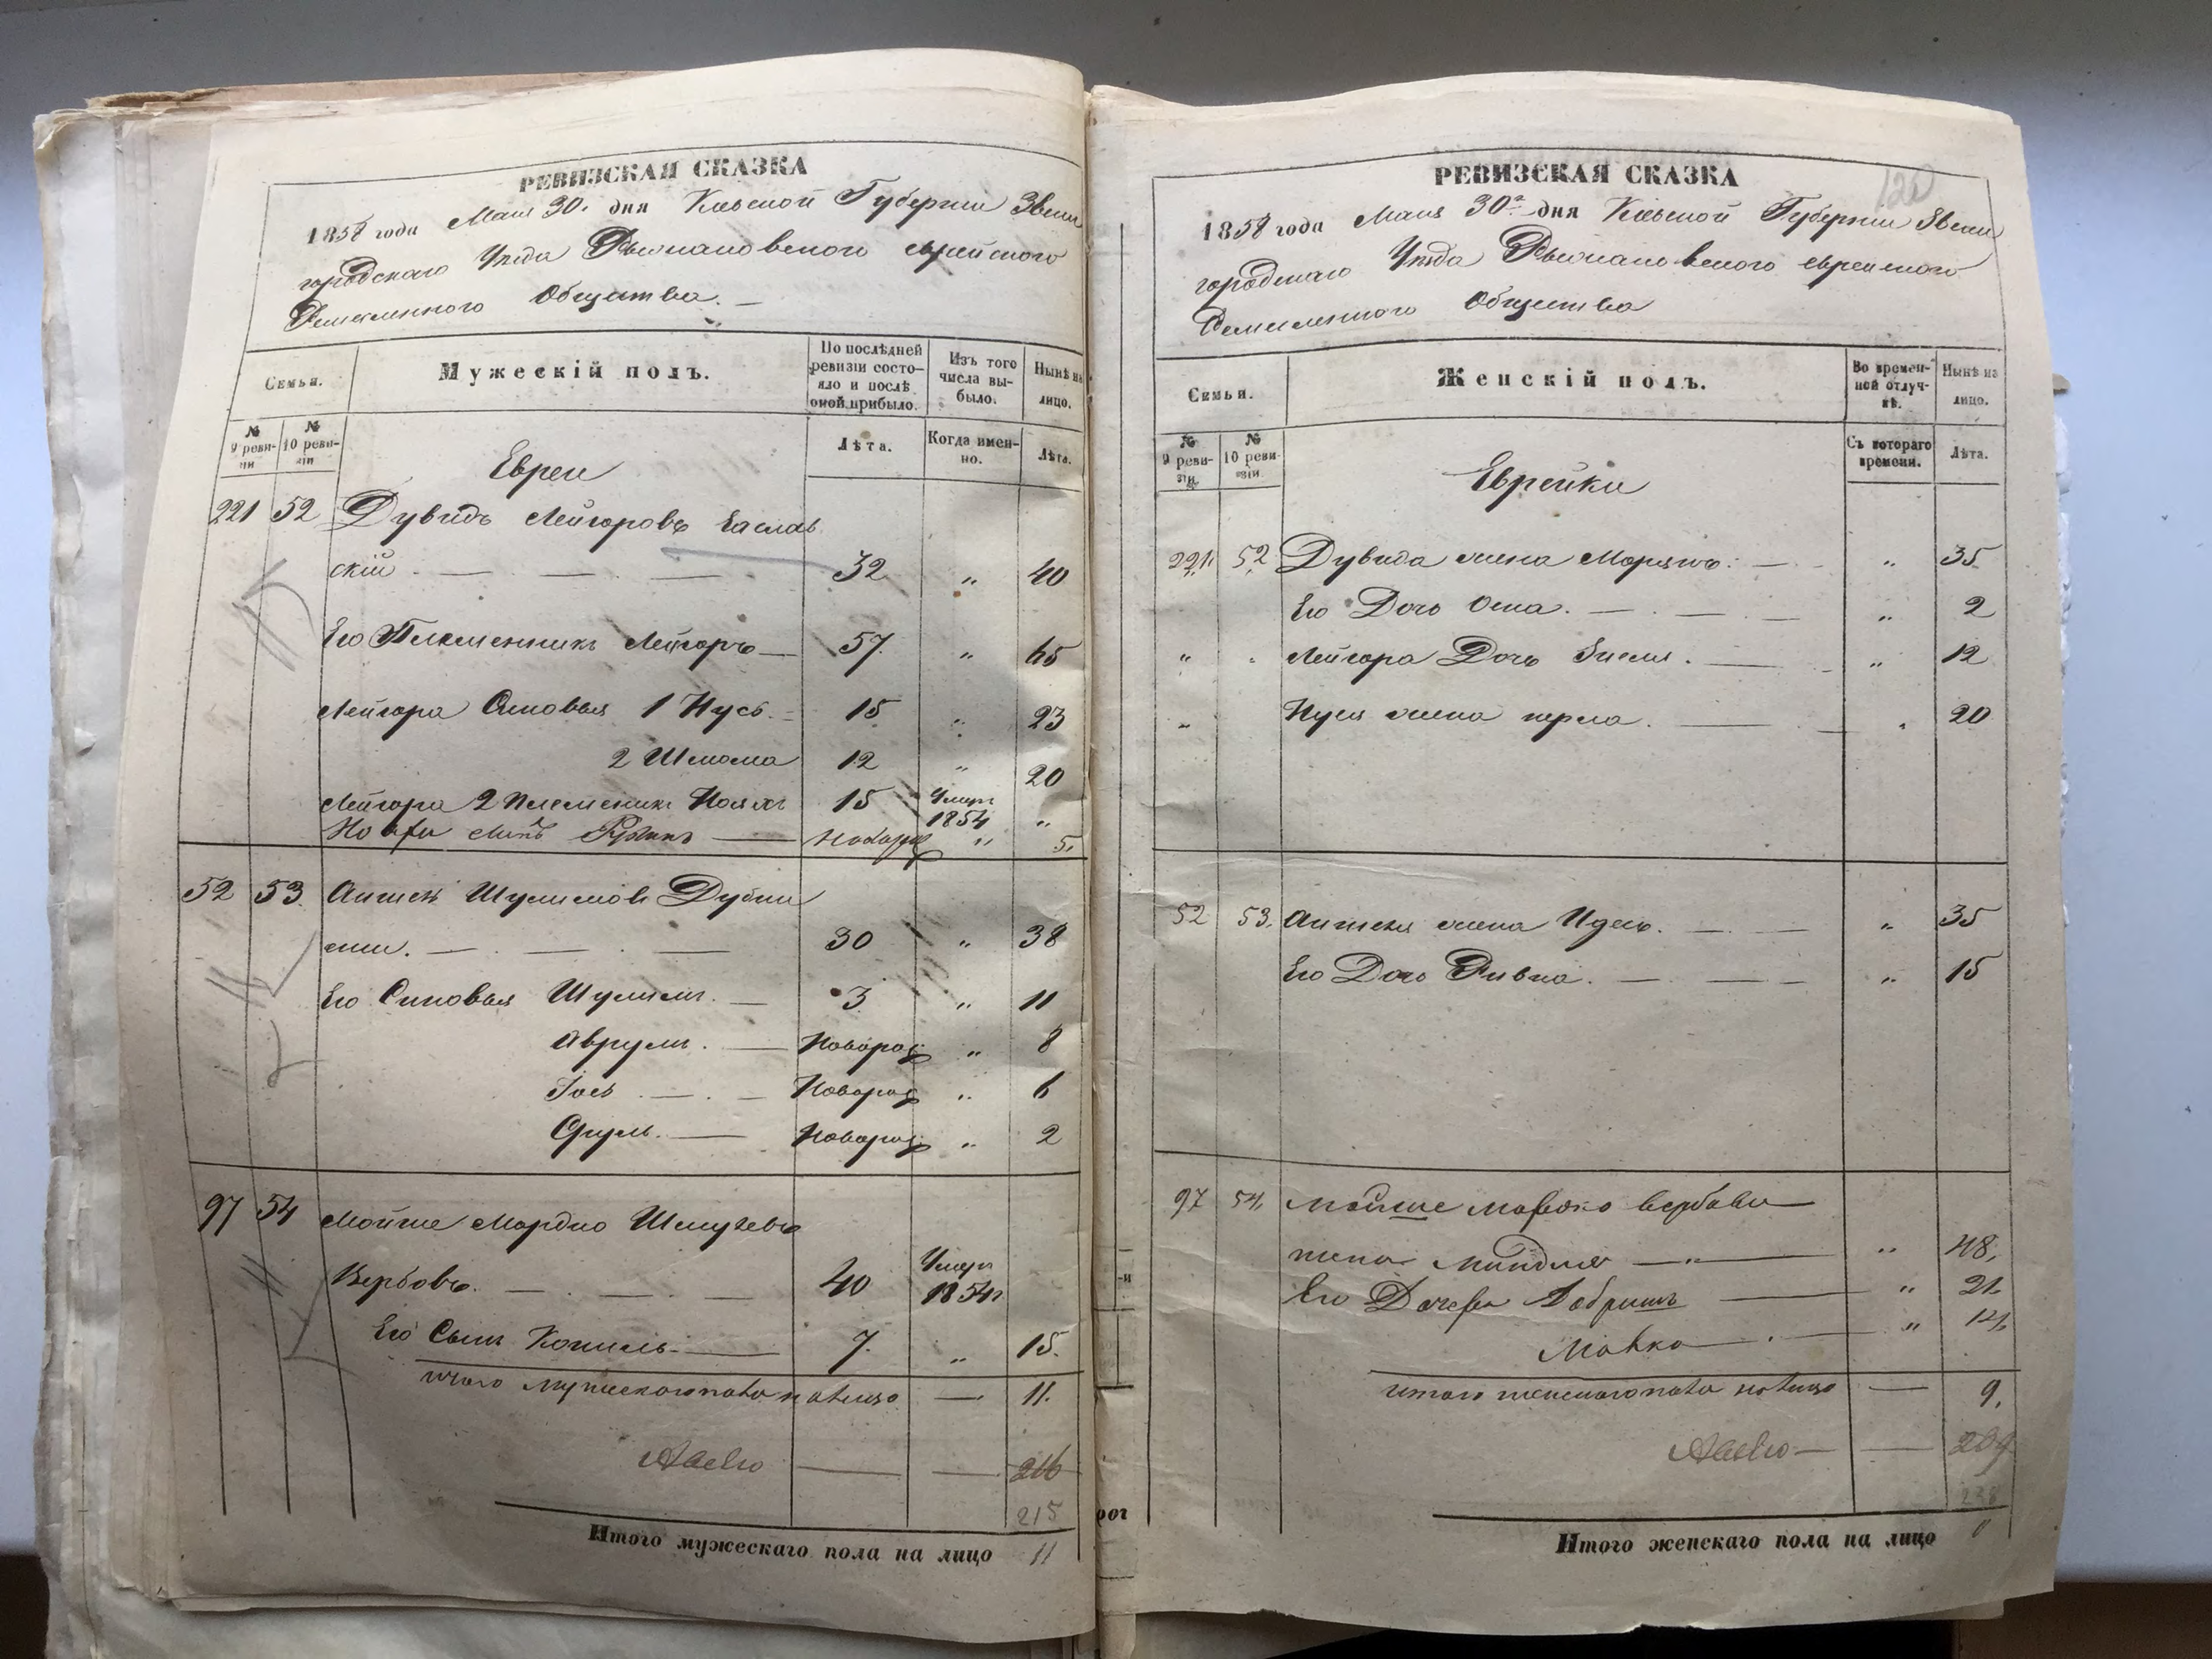 РЕВИЗСКАЯ СКАЗКА
1858 года Мая 30. дня Кіевской Губерніи Звени
городскаго Уѣзда еврейского
Ремесленного Общества. —
Семьи.
Мужескій полъ.
По послѣдней ревизіи состояло и послѣ оной прибыло.
Изъ того числа выбыло.
Нынѣ на лицо.
№ 9 ревизіи
№ 10 ревизіи
Лѣта.
Когда именно.
Лѣта.
Евреи
221 52 Дувидъ Лейзоровъ Заслав
скій. — 32 " 40
Его Племенникъ Лейзоръ — 57. " 65
Лейзора Сыновья 1 Нусь. 15 " 23
2 Шлиома 12 " 20
Лейзора 2 Племеникъ 15 Умеръ 1854 "
— Новорж " 5.
52 53. Шулимовъ Дубин
— 30 " 38
Его Сыновья Шулимъ. — 3 " 11
Аврумъ. — Новорож " 8
Іось — Новорож " 6
Сруль. — Новорож " 2
97 54 Мойше Мордко Шмулевъ
Вербовъ. — 40 Умеръ 1854г
Его Сынъ Копиль — 7. " 15.
итого мужескаго пола на лицо — 11.
— — 216
215
Итого мужескаго пола на лицо 11
РЕВИЗСКАЯ СКАЗКА
120
1858 года Мая 30го дня Кіевской Губерніи Звени
городскаго Уѣзда еврейского
Ремесленного Общества
Семьи.
Женскій полъ.
Во временной отлучкѣ.
Нынѣ на лицо.
№ 9 ревизіи.
№ 10 ревизіи.
Съ котораго времени.
Лѣта.
Еврейки
221 52 Дувида жена — " 35
Его Дочь — " 2
" Лейзора Дочь — " 12
" Нуся жена перла. — " 20
52 53. жена Идесь. — " 35
Его Дочь Ривка. — " 15
97 54. Мойше Мордко Вербова
жена Миндля — " 48.
Его Дочери Добришъ — " 21
Малка — " 14
итого женскаго пола налицо — 9.
— — 209
Итого женскаго пола на лицо